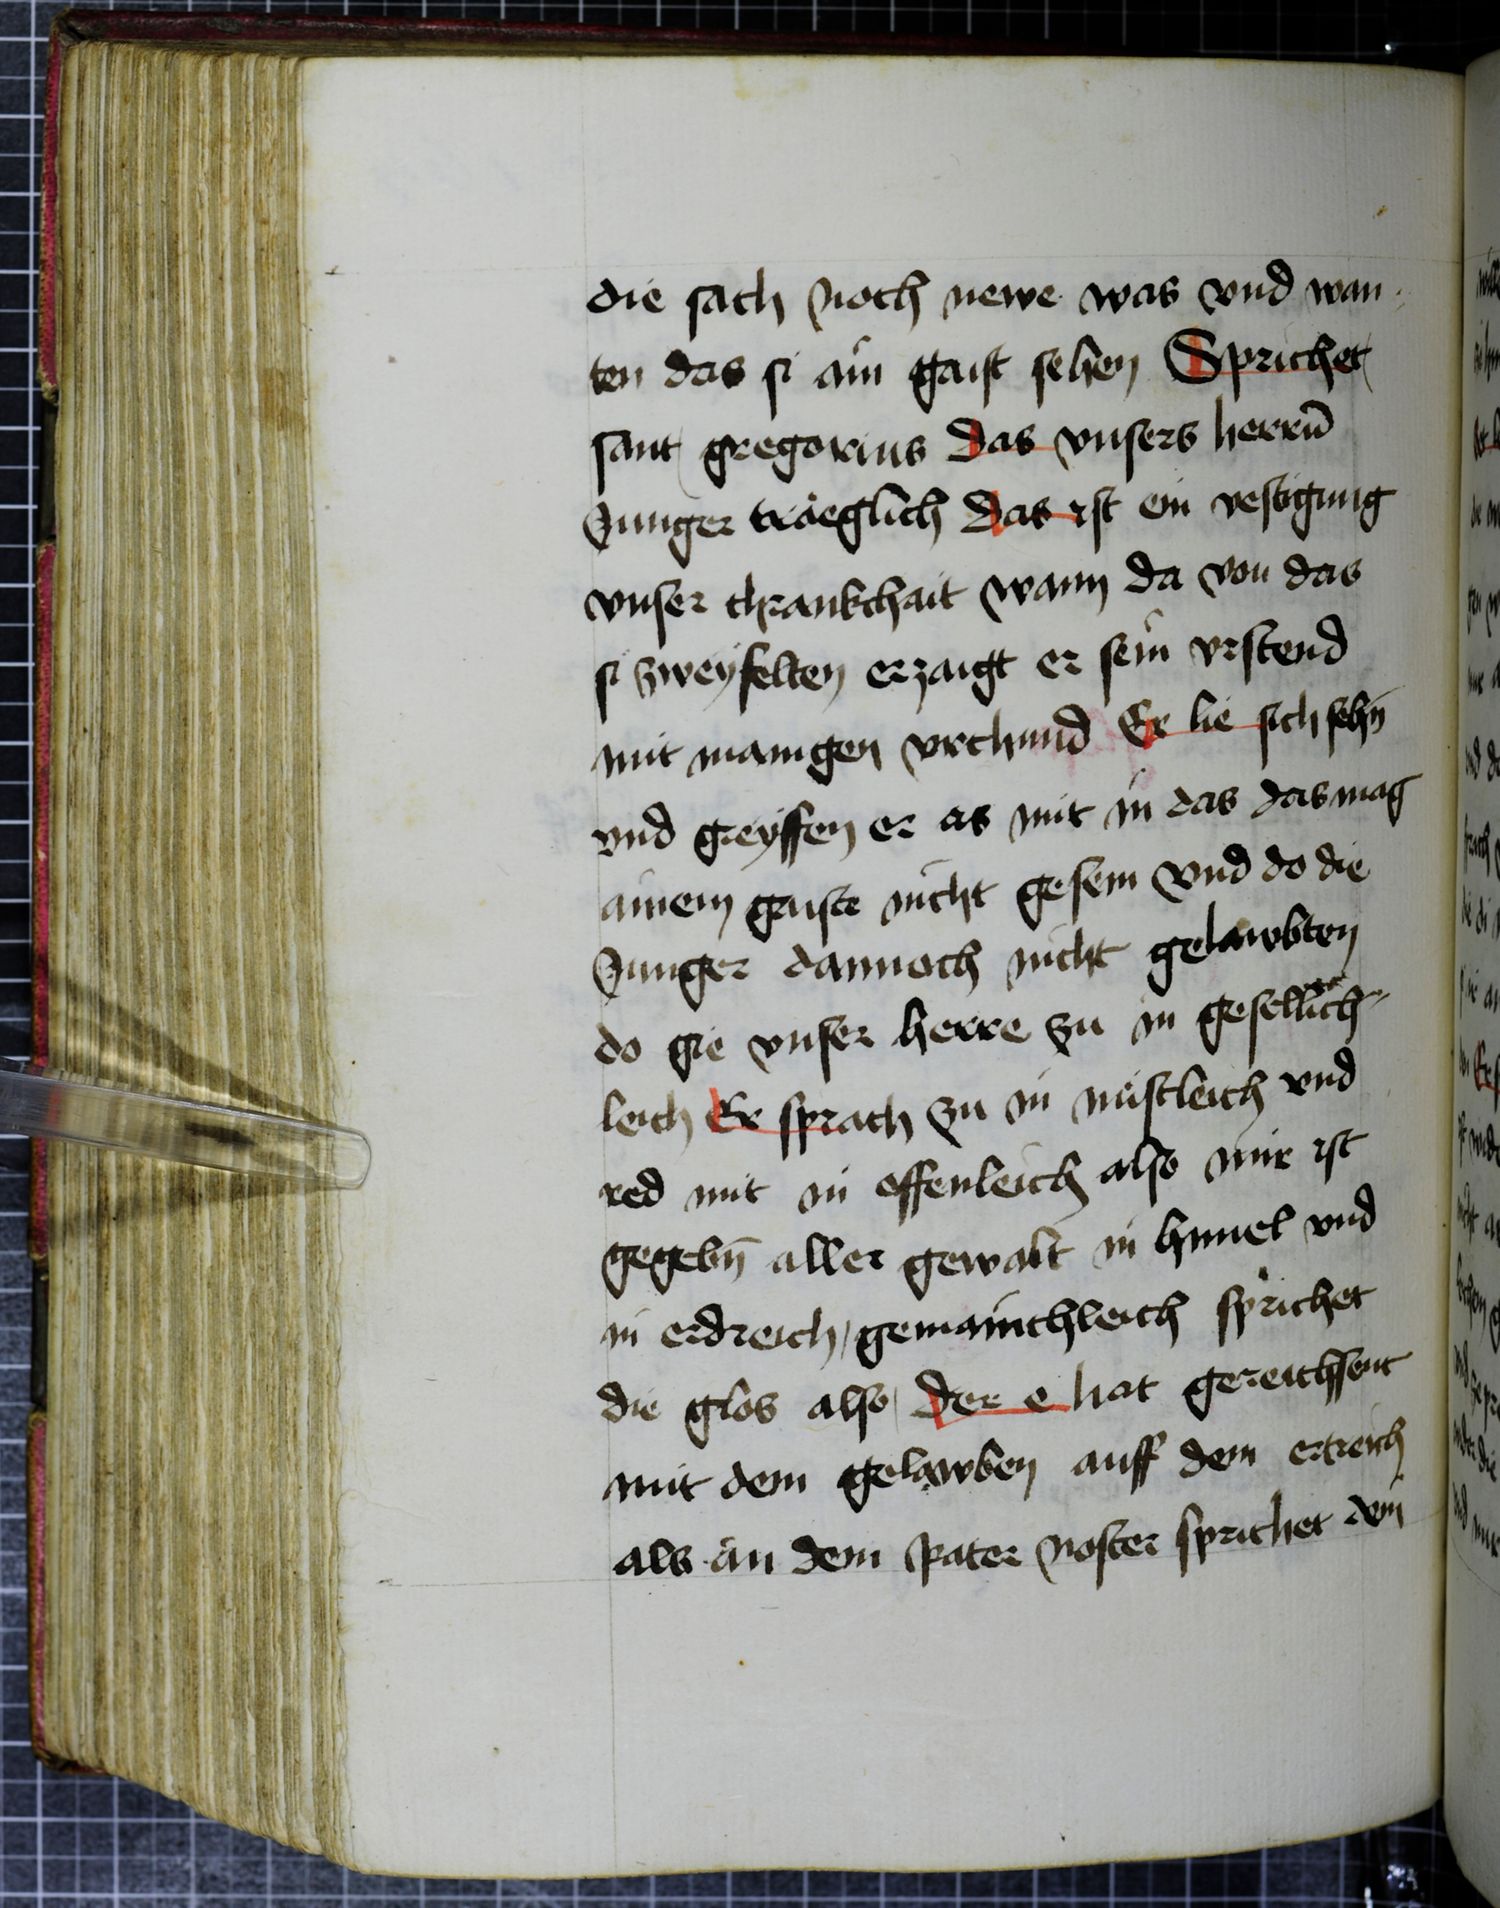 die sach noch newe was vnd wan
ten das si ain gaist sehen Sprichet
sant gregorius das vnsers herrn̄
Junger träeglich das ist ein vestigung
vnser chrankchait wann da von das
si zweyfelten erzaigt er sein vrstend
mit manigen vrchund Er lie sich sehn̄
vnd greyffen er as mit in das das mag
ainem gaiste nicht gesein vnd do die
Junger dannoch nicht gelawbten
do gie vnser herre zu in gesellich
leich Er sprach zu in meistleich vnd
red mit in offenleich also mir ist
gegebn̄ aller gewalt in himel vnd
in erdreich gemainchleich sprichet
die glos also der e hat gereichsent
mit dem gelawben auff dem ertreich
als an dem pater noster sprichet dein